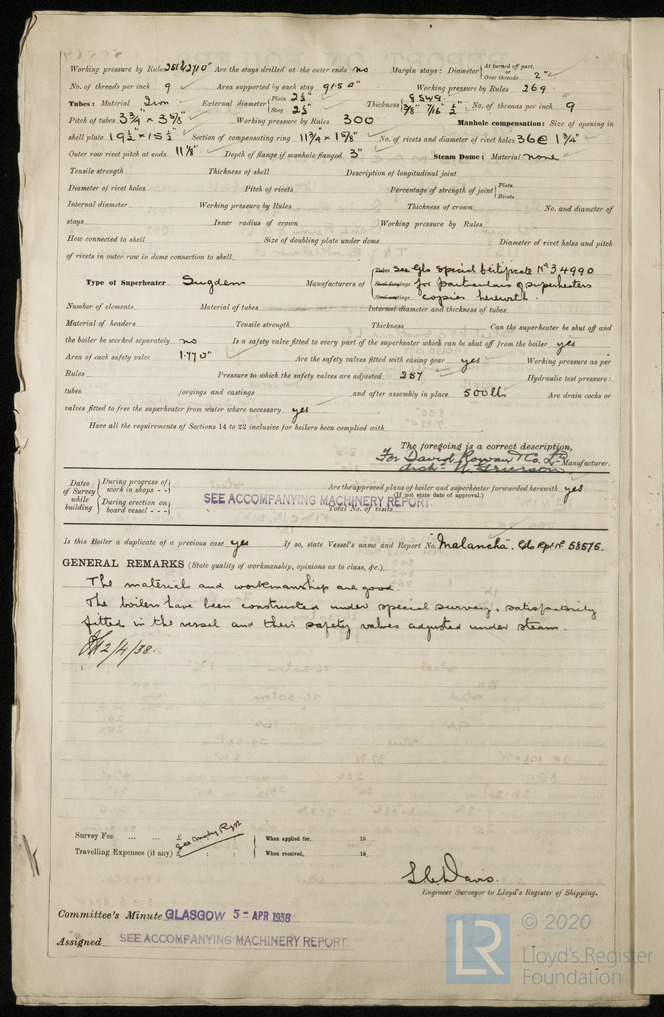 Working pressure by Rules 251 & 270 □" Are the stays drilled at the outer ends no Margin stays: Diameter { At turned off part, or Over threads 2"
No. of threads per inch 9 Area supported by each stay 91.5 □" Working pressure by Rules 269
Tubes: Material Iron External diameter { Plain 2½" Stay 2½" Thickness { 8 SWG 3/8" 7/16" ½" No. of threads per inch 9
Pitch of tubes 3¾" x 3 5/8" Working pressure by Rules 300 Manhole compensation: Size of opening in
shell plate 19½" x 15½" Section of compensating ring 11¾" x 1 5/8" No. of rivets and diameter of rivet holes 36 @ 1¾"
Outer row rivet pitch at ends 11 1/8" Depth of flange if manhole flanged 3" Steam Dome: Material none
Tensile strength Thickness of shell Description of longitudinal joint
Diameter of rivet holes Pitch of rivets Percentage of strength of joint { Plate Rivets
Internal diameter Working pressure by Rules Thickness of crown No. and diameter of
stays Inner radius of crown Working pressure by Rules
How connected to shell Size of doubling plate under dome Diameter of rivet holes and pitch
of rivets in outer row in dome connection to shell
Type of Superheater Sugden Manufacturers of { Tubes See Gls Special Certificate No 34990
for particulars of superheaters
copies herewith.
Number of elements Material of tubes Internal diameter and thickness of tubes
Material of headers Tensile strength Thickness Can the superheater be shut off and
the boiler be worked separately no Is a safety valve fitted to every part of the superheater which can be shut off from the boiler yes
Area of each safety valve 1.770" Are the safety valves fitted with easing gear yes Working pressure as per
Rules Pressure to which the safety valves are adjusted 257 Hydraulic test pressure:
tubes forgings and castings and after assembly in place 500 lbs Are drain cocks or
valves fitted to free the superheater from water where necessary yes
Have all the requirements of Sections 14 to 22 inclusive for boilers been complied with
The foregoing is a correct description,
For David Rowan & Co. Ld. Manufacturer.
Archd. W. Grierson
Dates of Survey while building { During progress of work in shops - - { During erection on board vessel - - -
SEE ACCOMPANYING MACHINERY REPORT
Are the approved plans of boiler and superheater forwarded herewith yes
(If not state date of approval.)
Total No. of visits
Is this Boiler a duplicate of a previous case yes If so, state Vessel's name and Report No. "Malancha". Gls Rpt No 58575.
GENERAL REMARKS (State quality of workmanship, opinions as to class, &c.)
The material and workmanship are good.
The boilers have been constructed under special survey, satisfactorily
fitted in the vessel and their safety valves adjusted under steam.
2/4/38.
Survey Fee ... ... £ When applied for, 19
Travelling Expenses (if any) £ When received, 19
See Mchy Rpt
Engineer Surveyor to Lloyd's Register of Shipping.
Committee's Minute GLASGOW 5 - APR 1938
Assigned SEE ACCOMPANYING MACHINERY REPORT
LR © 2020
Lloyd's Register
Foundation